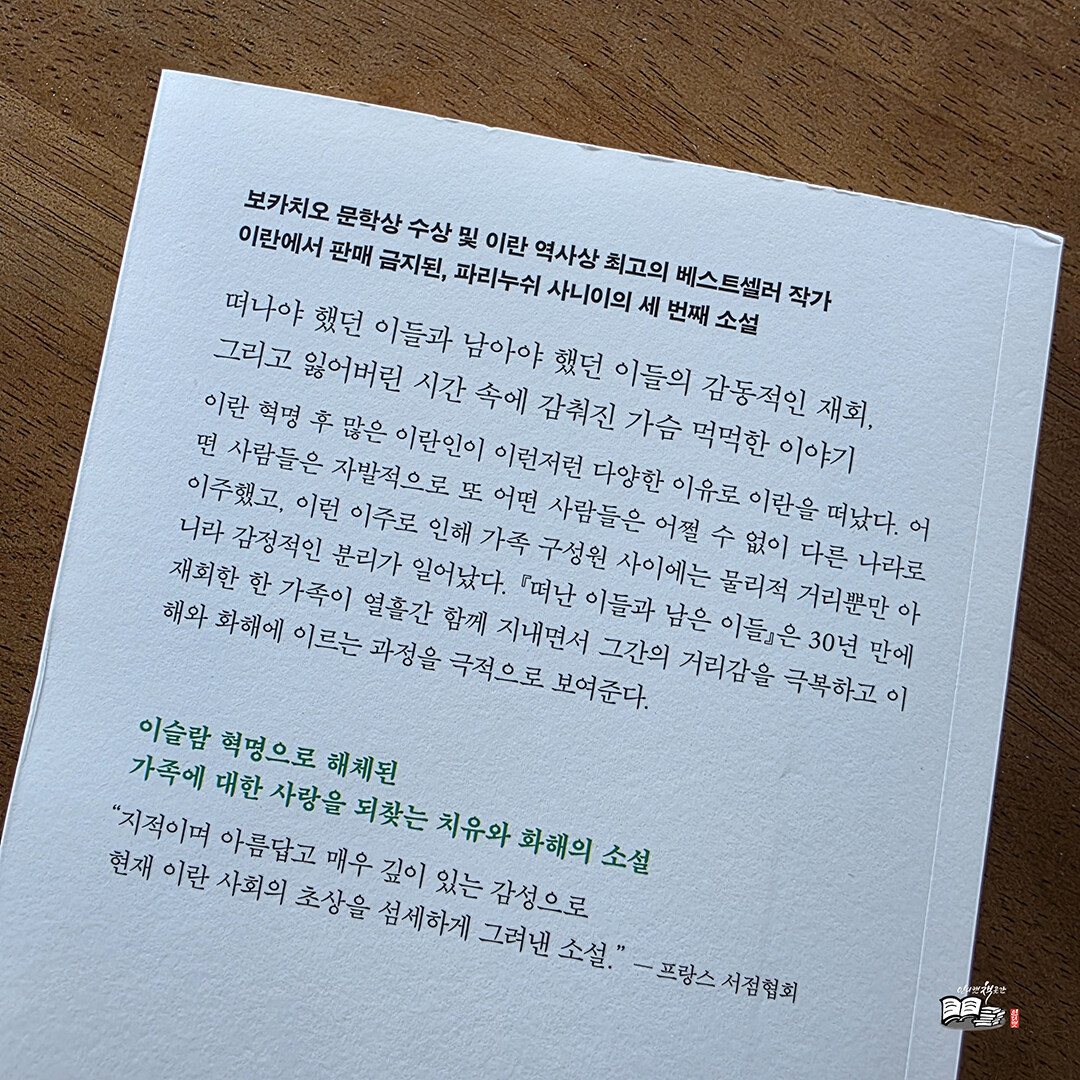 보카치오 문학상 수상 및 이란 역사상 최고의 베스트셀러 작가
이란에서 판매 금지된, 파리누쉬 사니이의 세 번째 소설
떠나야 했던 이들과 남아야 했던 이들의 감동적인 재회,
그리고 잃어버린 시간 속에 감춰진 가슴 먹먹한 이야기
이란 혁명 후 많은 이란인이 이런저런 다양한 이유로 이란을 떠났다. 어
떤 사람들은 자발적으로 또 어떤 사람들은 어쩔 수 없이 다른 나라로
이주했고, 이런 이주로 인해 가족 구성원 사이에는 물리적 거리뿐만 아
니라 감정적인 분리가 일어났다. 『떠난 이들과 남은 이들』은 30년 만에
재회한 한 가족이 열흘간 함께 지내면서 그간의 거리감을 극복하고 이
해와 화해에 이르는 과정을 극적으로 보여준다.
이슬람 혁명으로 해체된
가족에 대한 사랑을 되찾는 치유와 화해의 소설
“지적이며 아름답고 매우 깊이 있는 감성으로
현재 이란 사회의 초상을 섬세하게 그려낸 소설.” — 프랑스 서점협회